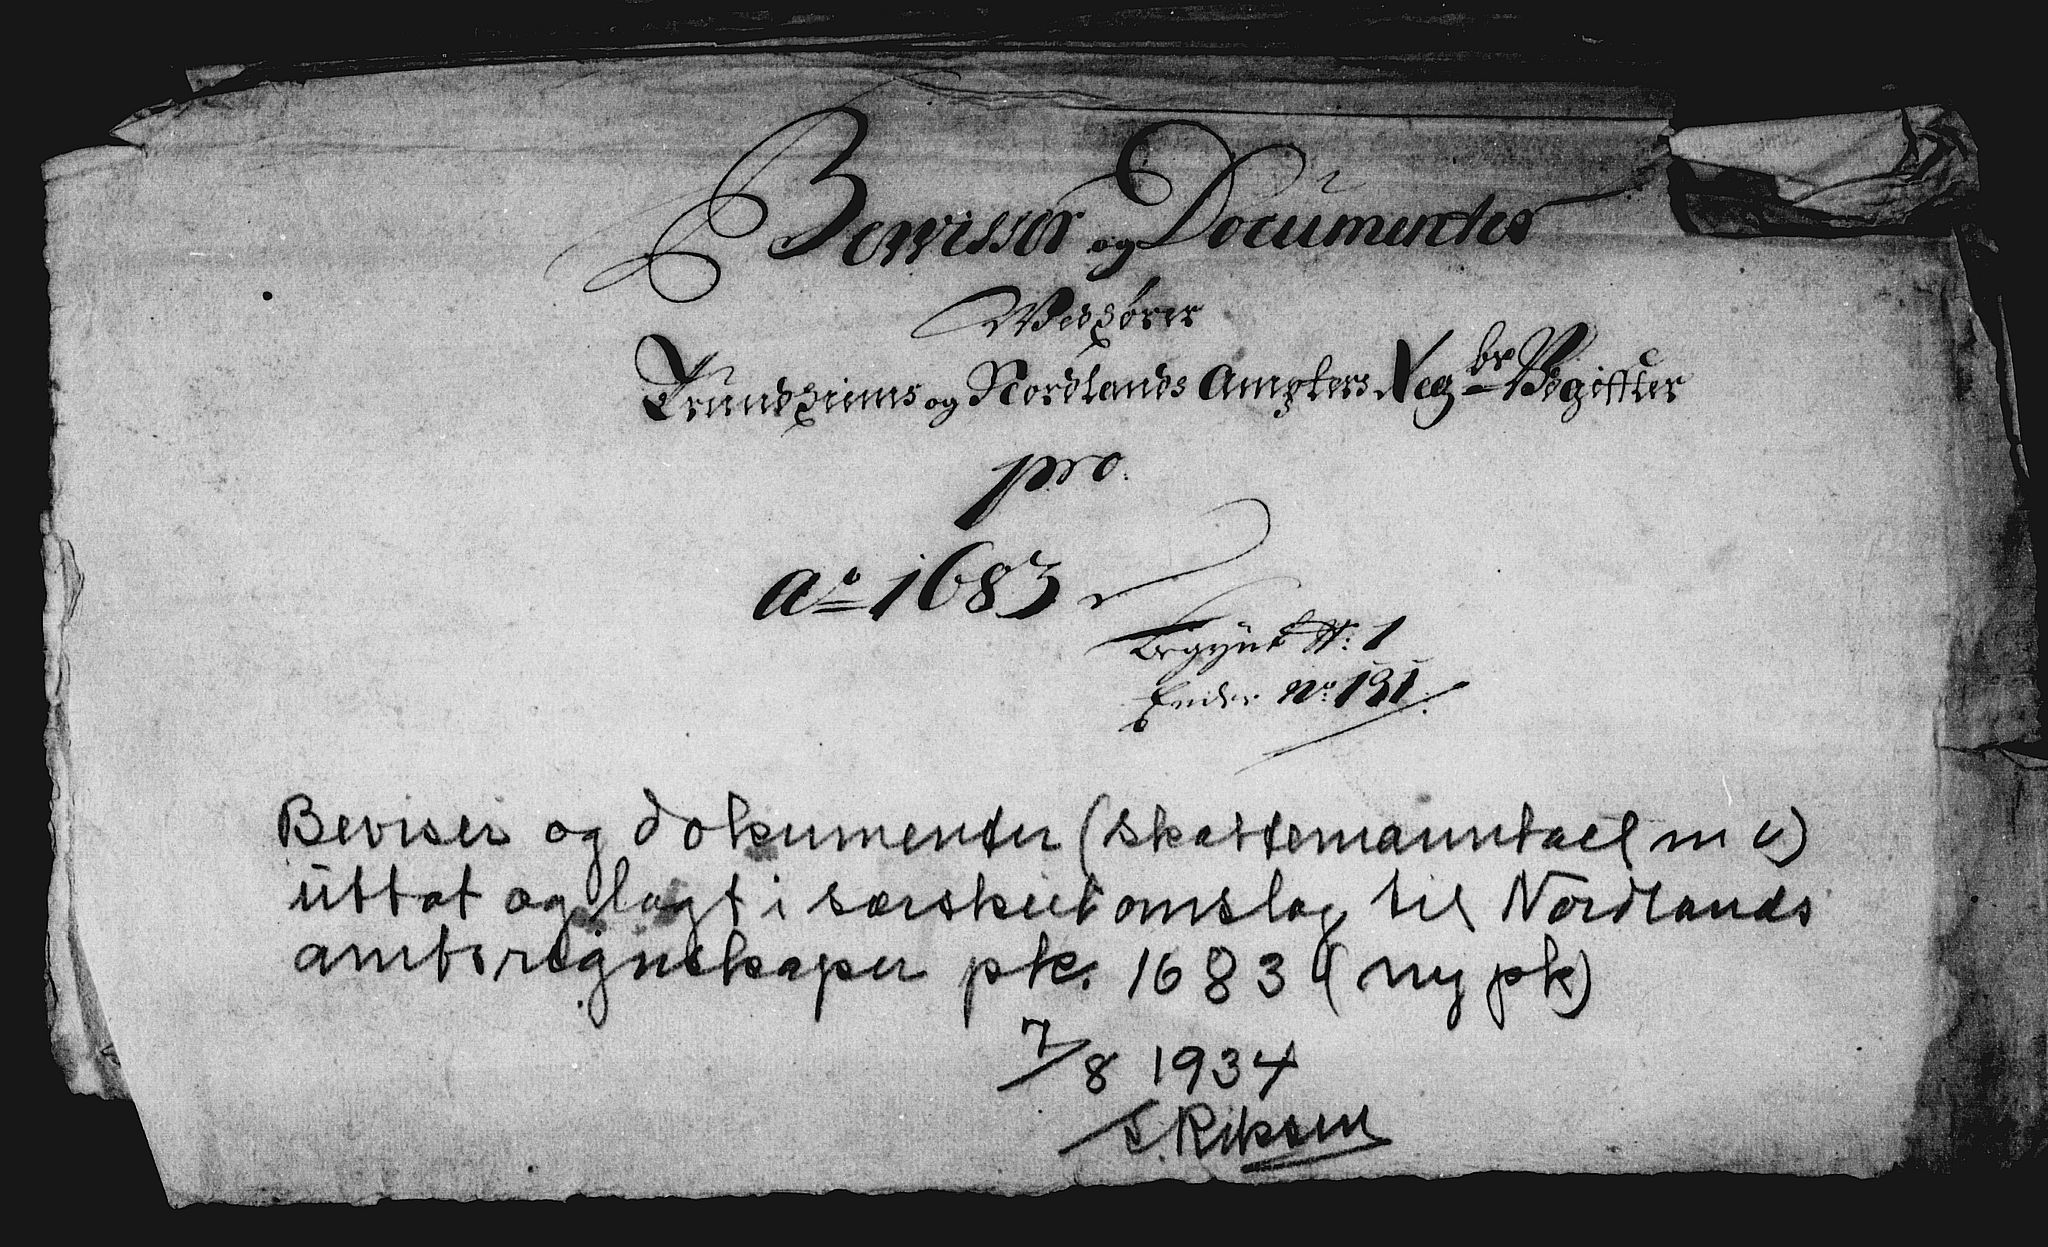 Bewisser og Documenter
Wedhører
Trundhiems og Nordlands Ampters Regbr Udgiffter
pro.
Ao 1683
Begynt No: 1
Ender No: 191
Beviser og dokumenter (skattemanntall m v)
uttat og lagt i særskilt omslag til Nordlands
amtsregnskaper pk. 1683 (ny pk)
7/8 1934